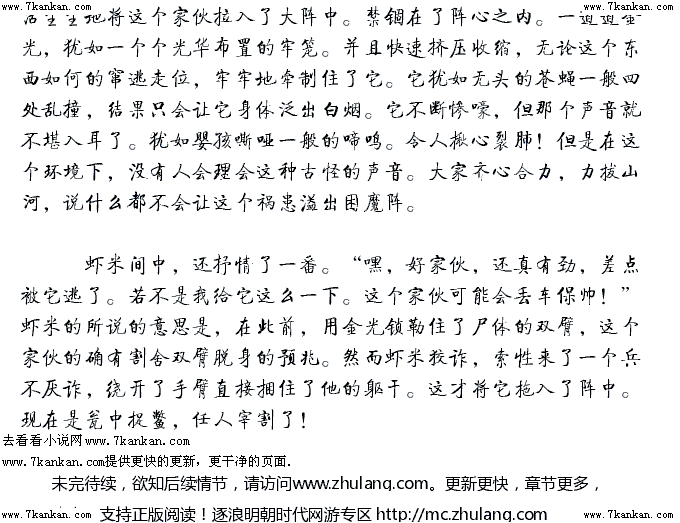 www.7kankan.com www.7kankan.com
地将这个家伙拉入了大阵中。禁锢在了阵心之内。一道道金
光，犹如一个个光华布置的牢笼。并且快速挤压收缩，无论这个东
西如何的窜逃走位，牢牢地牵制住了它。它犹如无头的苍蝇一般四
处乱撞，结果只会让它身体泛出白烟。它不断惨嚎，但那个声音就
不堪入耳了。犹如婴孩嘶哑一般的啼鸣。令人揪心裂肺！但是在这
个环境下，没有人会理会这种古怪的声音。大家齐心合力，力拔山
河，说什么都不会让这个祸患溢出困魔阵。
虾米间中，还抒情了一番。“嘿，好家伙，还真有劲，差点
被它逃了。若不是我给它这么一下。这个家伙可能会丢车保帅！”
虾米的所说的意思是，在此前，用金光锁勒住了尸体的双臂，这个
家伙的确有割舍双臂脱身的预兆。然而虾米狡诈，索性来了一个兵
不厌诈，绕开了手臂直接捆住了他的躯干。这才将它拖入了阵中。
现在是瓮中捉鳖，任人宰割了！
去看看小说网www.7kankan.com
www.7kankan.com提供更快的更新，更干净的页面.
未完待续，欲知后续情节，请访问www.zhulang.com。更新更快，章节更多，
支持正版阅读！逐浪明朝时代网游专区 http://mc.zhulang.com
www.7kankan.com www.7kankan.com